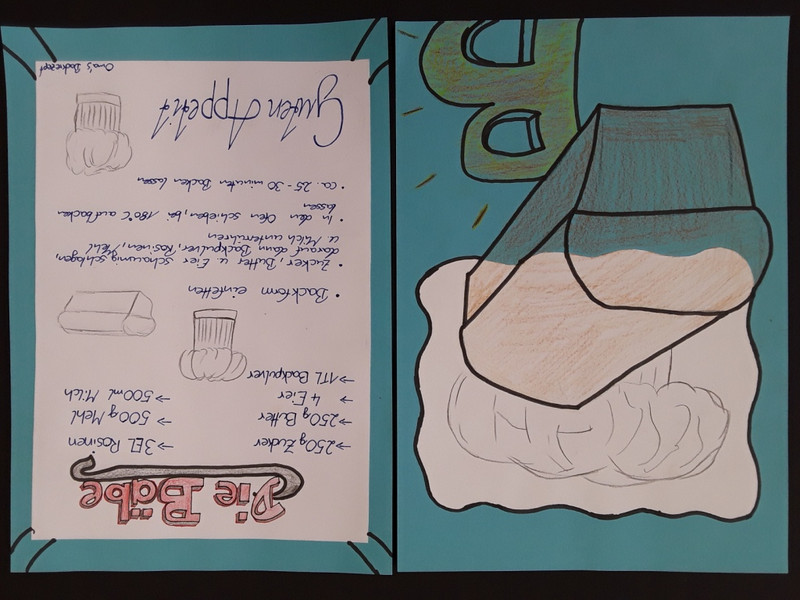 B
Die Bäbe
→250g Zucker →3EL Rosinen
→250g Butter →500g Mehl
→ 4 Eier →500ml Milch
→1TL Backpulver
• Backform einfetten
• Zucker, Butter u Eier schaumig schlagen,
darauf dann Backpulver, Rosinen, Mehl
u Milch unterrühren
• In den Ofen schieben, bei 180°C aufbacken
lassen
• ca. 25-30 minuten Backen lassen
Guten Appetit
Oma's